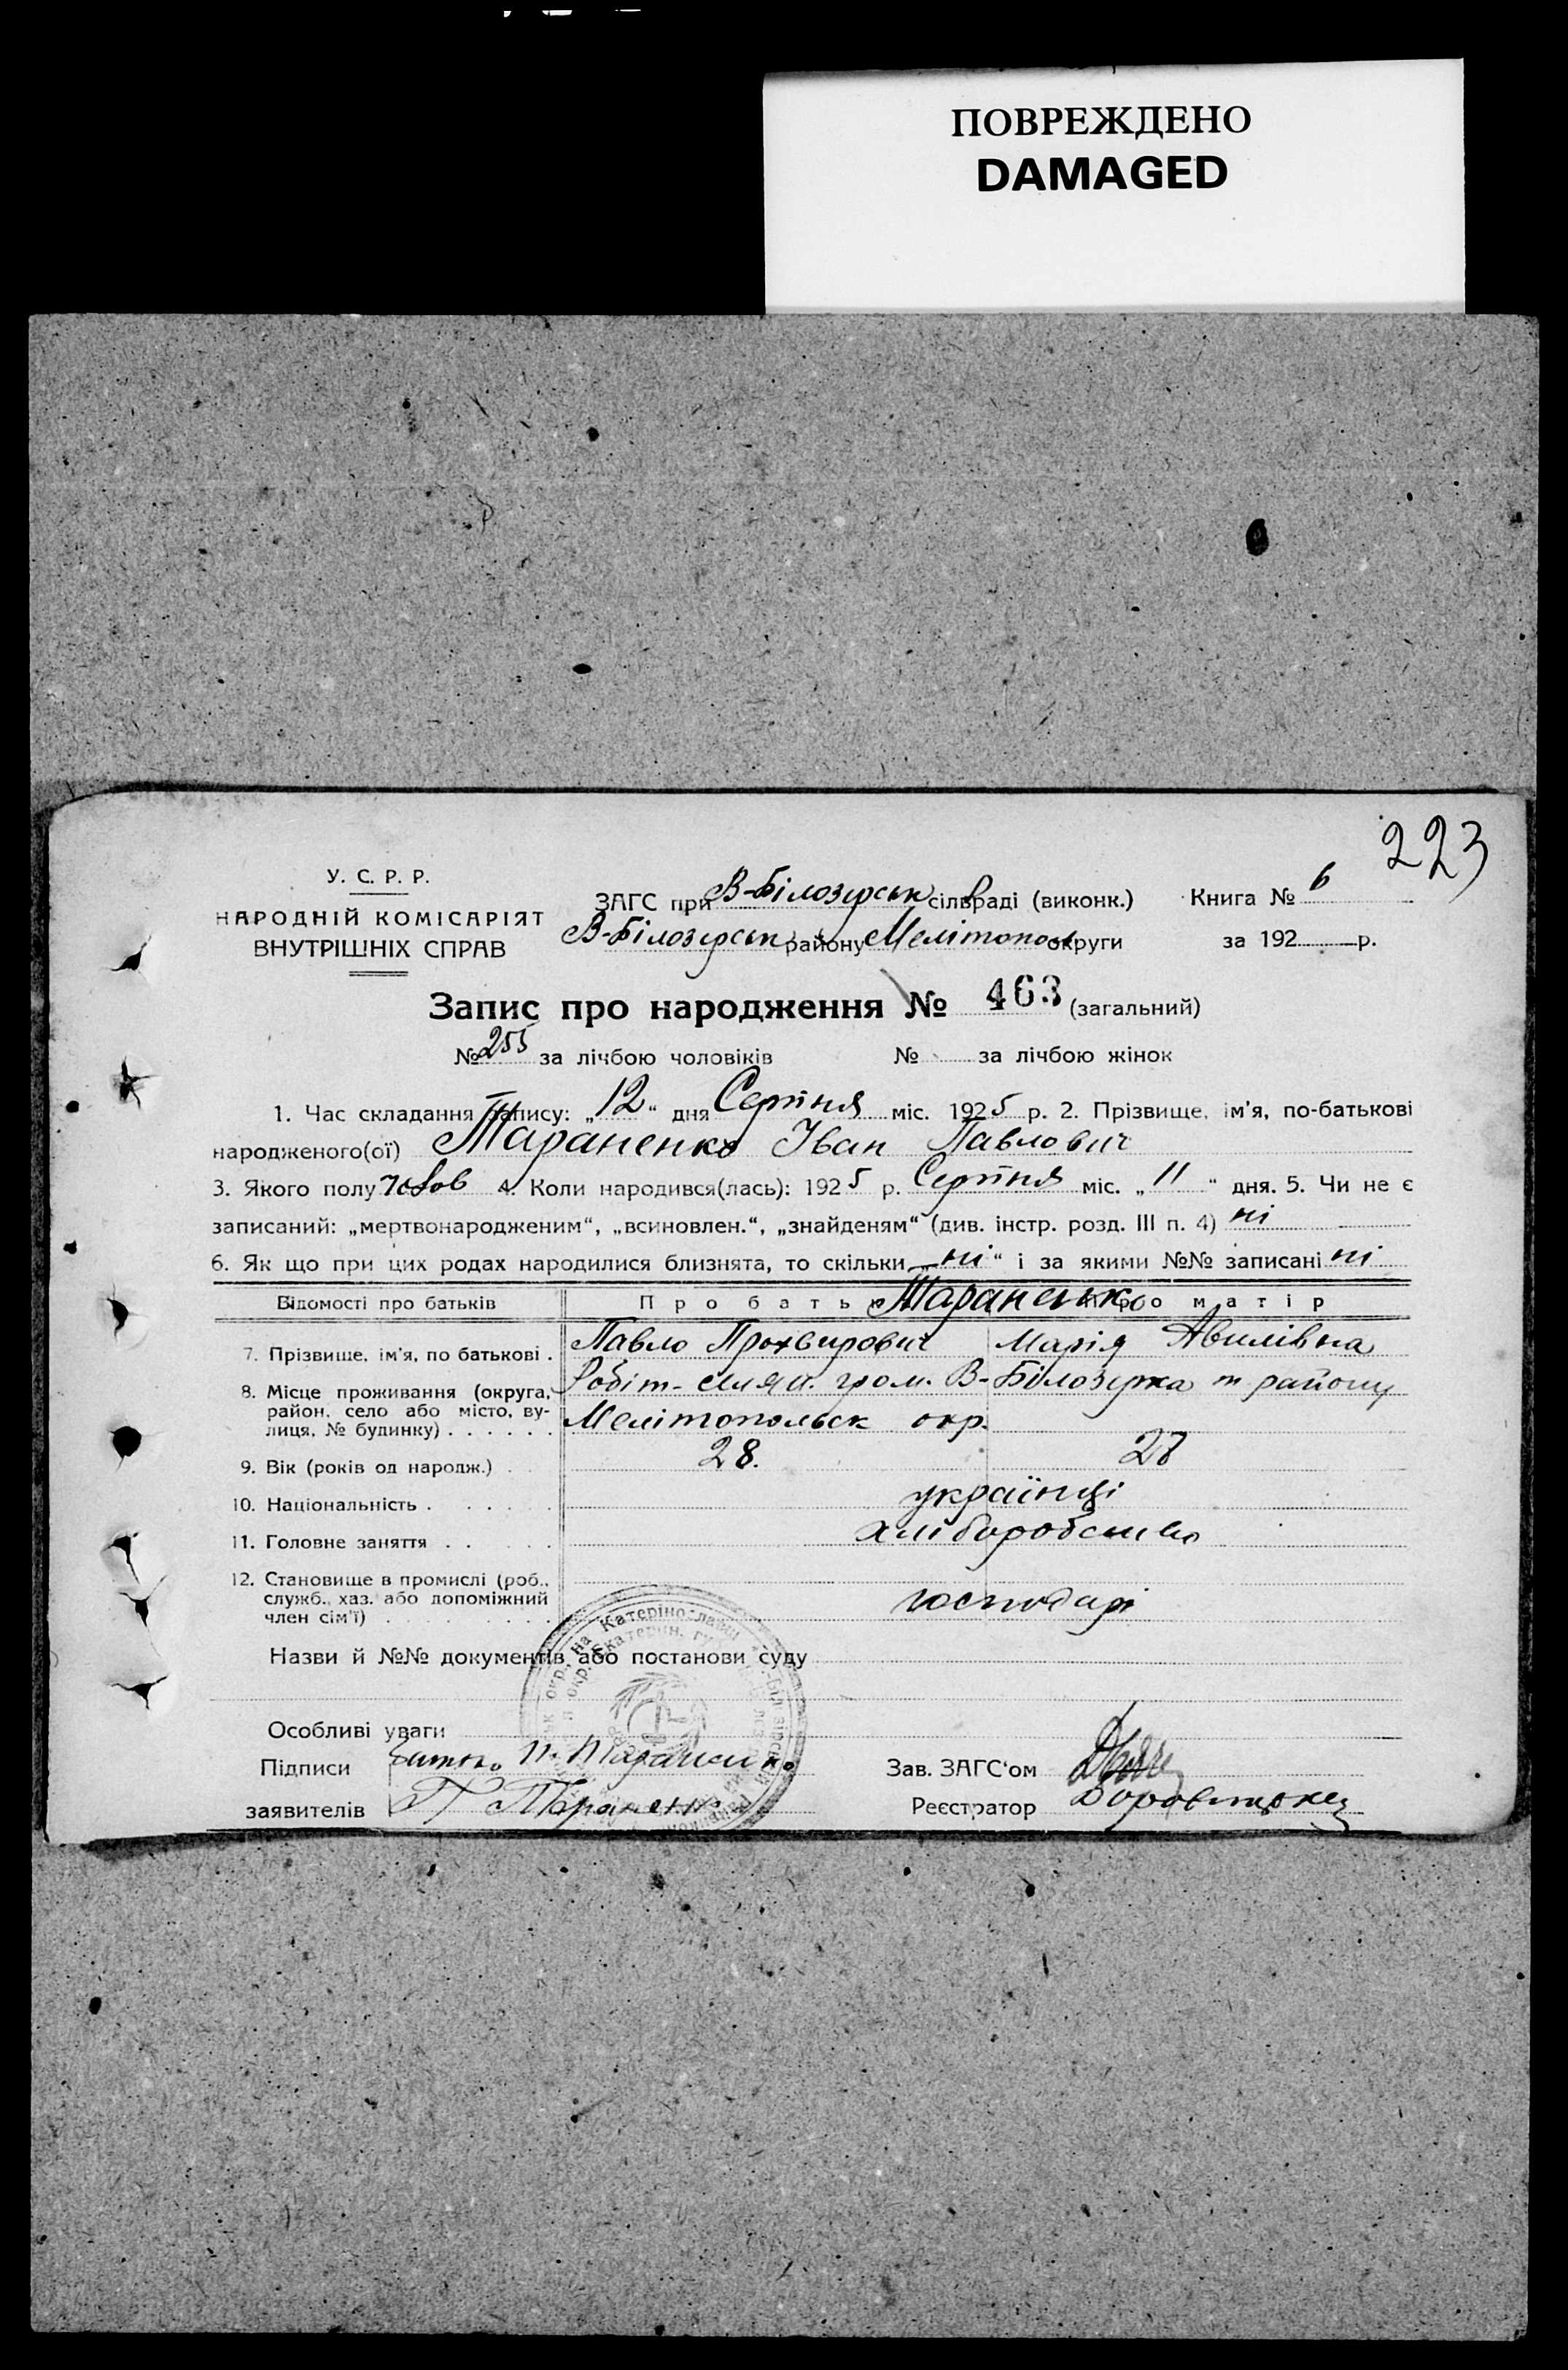 ПОВРЕЖДЕНО
DAMAGED
223
У. С. Р. Р.
НАРОДНІЙ КОМІСАРІЯТ
ВНУТРІШНІХ СПРАВ
ЗАГС при В-Білозерськ сільраді (виконк.)
В-Білозерськ району Мелітополь округи
Книга № 6
за 192 р.
Запис про народження № 463 (загальний)
№ 255 за лічбою чоловіків № за лічбою жінок
1. Час складання запису: „12“ дня Серпня міс. 1925 р. 2. Прізвище, ім'я, по-батькові
народженого(ої) Тараненко Іван Павлович
3. Якого полу чолов 4. Коли народився(лась): 1925 р. Серпня міс. „11“ дня. 5. Чи не є
записаний: „мертвонародженим“, „всиновлен.“, „знайденям“ (див. інстр. розд. III п. 4) ні
6. Як що при цих родах народилися близнята, то скільки „ні“ і за якими №№ записані ні
Відомості про батьків Про батька Тараненько Про матір
7. Прізвище, ім'я, по батькові . Павло Марія
8. Місце проживання (округа, район, село або місто, вулиця, № будинку) . . . . . . Робіт-селян. гром. В-Білозерка т району
Мелітопольск окр.
9. Вік (років од народж.) . 28. 28
10. Національність . . . . . . українці
11. Головне заняття . . . . . хліборобство
12. Становище в промислі (роб., служб., хаз. або допоміжний член сім'ї) . . . . . . . господарі
Назви й №№ документів або постанови суду
Особливі уваги
Підписи Батько П. Тараненко
заявителів П Тараненко
Зав. ЗАГС'ом
Реєстратор